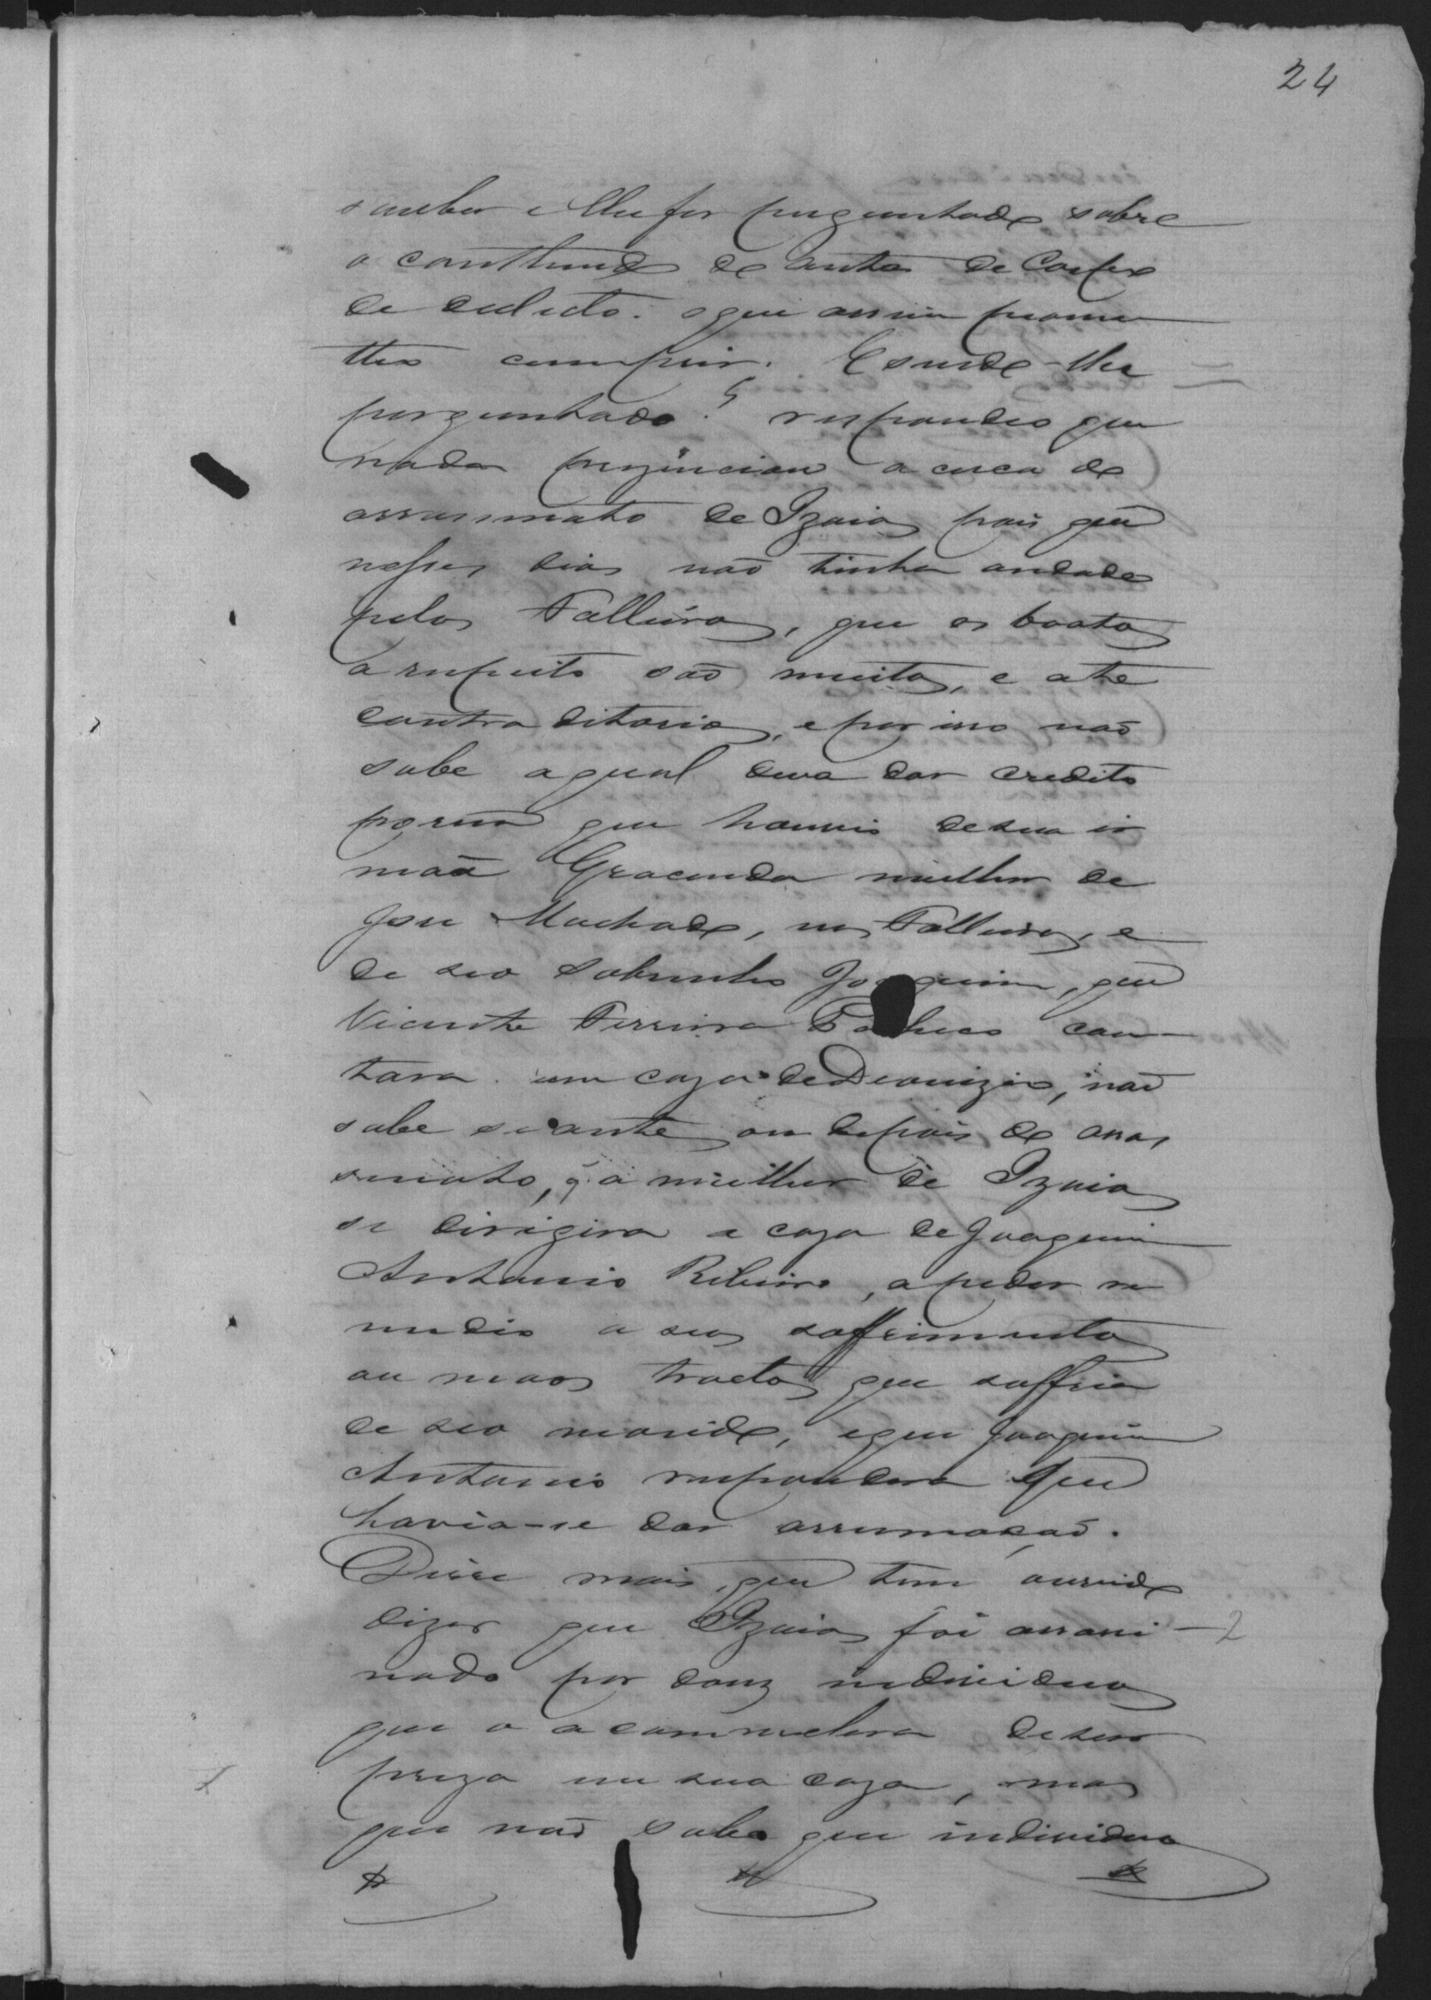 24
souber e lhe for perguntado sobre
o conthiudo do auto de Corpo
de delicto. o que assim prome
tteo cumprir. E sendo-lhe
perguntado? respondeo que
nada prezenciou a cerca do
assassinato de Izaias pois que
nesses dias não tinha andado
pelos Falleiros, que os boatos
a respeito são muitos, e athe
contraditorios, e por isso não
sabe a qual deva dar credito
porem que houvio de sua ir
maã Gracinda mulher de
Jose Machado, nos Falleiros, e
de seo sobrinho Joaquim, que
Vicente Ferreira Pacheco con
tara em caza de Dionizio, não
sabe se antes ou depois do assas
sinato, q. a mulher de Izaias
se dirigira a caza de Joaquim
Antonio Ribeiro, a pedir re
medio a seos soffrimentos
ou maos tractos que soffria
de seo marido, e que Joaquim
Antonio respondera que
havia-se dar arrumação.
Disse mais que tem ouvido
dizer que Izaias foi assasi-
2
nado por douz individuos
que o acommetera de sur
preza em sua caza, mas
que não sabe que individuos